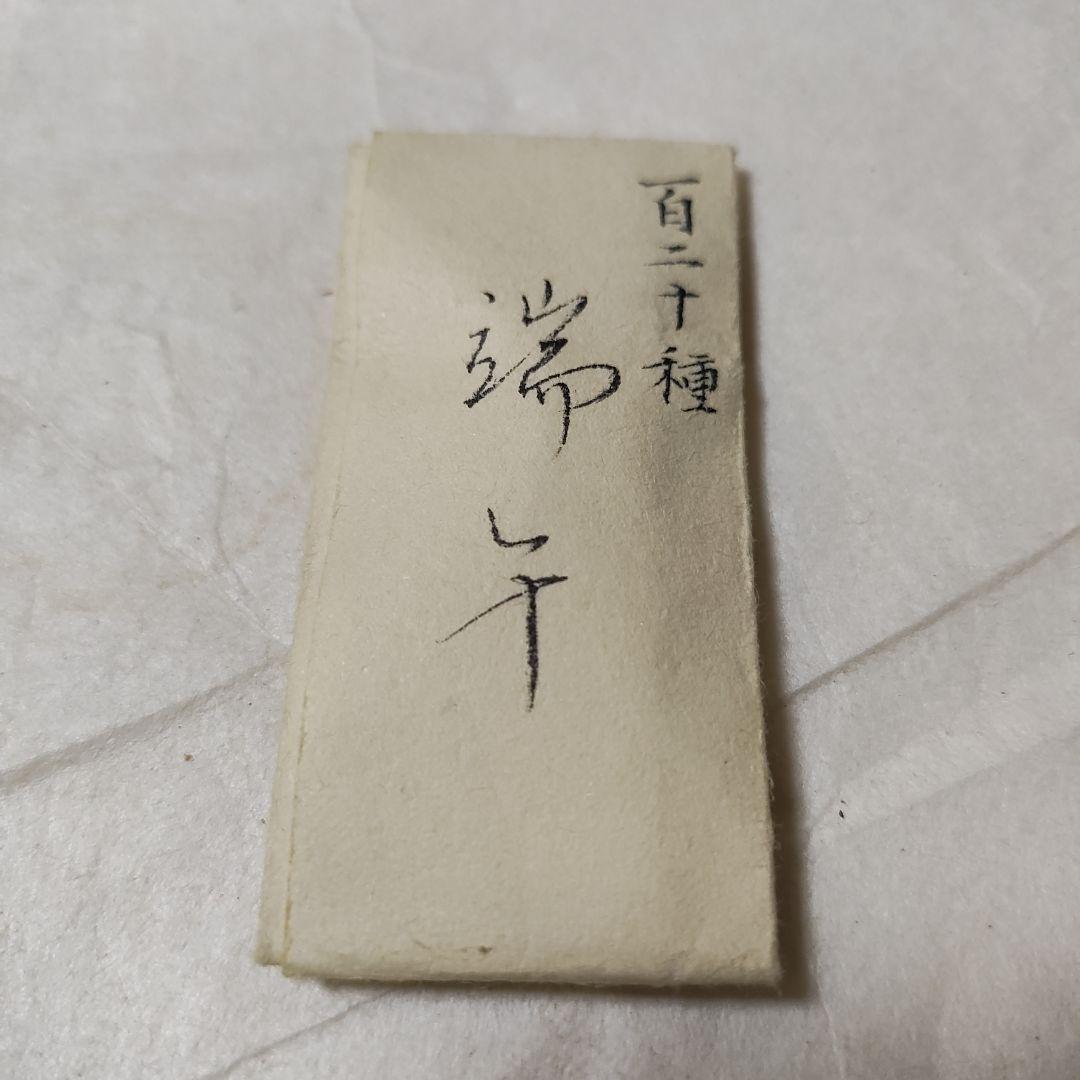 百二十種
端午